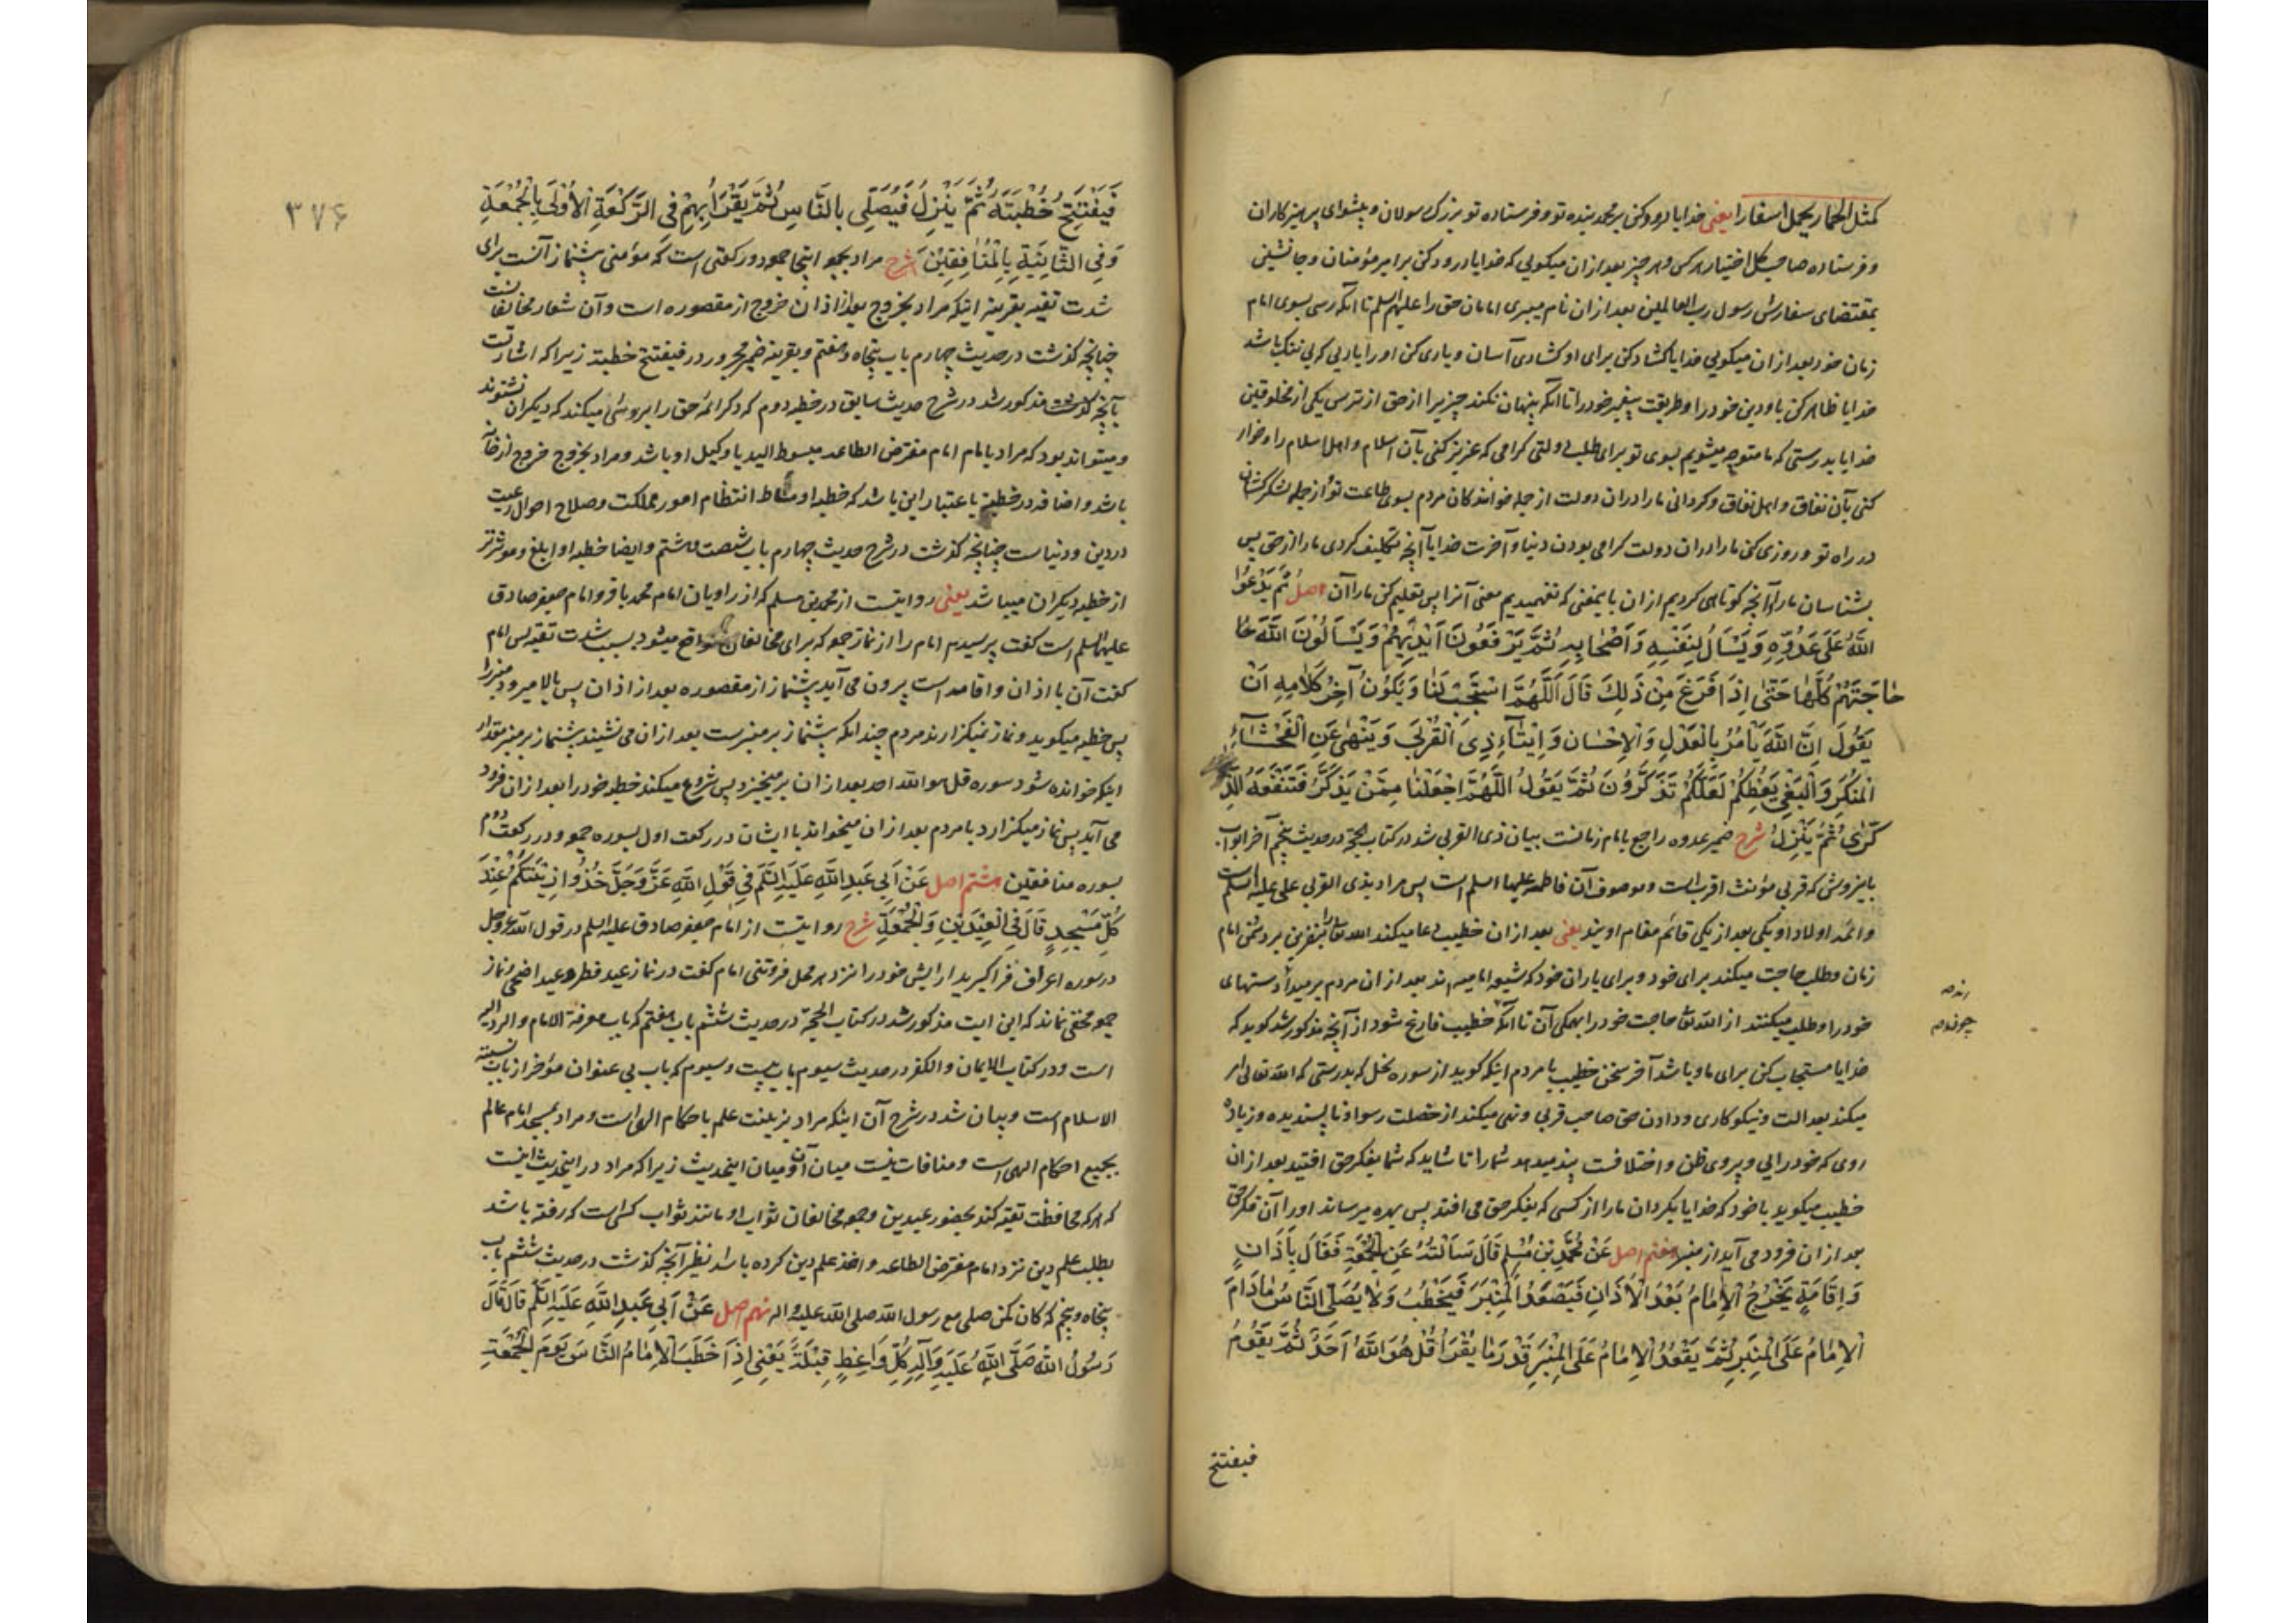 کمثل الحمار یحمل اسفارا یعنی خدایا درود کن بر محمد بنده تو و فرستاده تو بزرک رسولان و پیشوای پرهیزکاران
و فرستاده صاحب کل اختیار هر کس و هر چیز بعد از ان میکویی که خدایا درود کن بر امیر مؤمنان و جانشین
بمقتضای سفارش رسول رب العالمین بعد از ان نام میبری امامان حق را علیهم السلم تا آنکه رسی بسوی امام
زمان خود بعد از ان میکویی خدایا کشاد کن برای او کشادی آسان و یاری کن او را یاریی که بی ننک باشد
خدایا ظاهر کن باو دین خود را و طریقت پیغمبر خود را تا آنکه پنهان نکند چیزیرا از حق از ترس یکی از مخلوقین
خدایا بدرستی که ما متوجه میشویم بسوی تو برای طلب دولتی کرامی که عزیز کنی بآن اسلام و اهل اسلام را و خوار
کنی بآن نفاق و اهل نفاق و کردانی ما را در ان دولت از جمله خوانندکان مردم بسوی طاعت تو و از جمله لشکرکشان
در راه تو و روزی کن ما را در ان دولت کرامی بودن دنیا و آخرت خدایا آنچه تکلیف کردی ما را از حق پس
بشناسان ما را و آنچه کوتاهی کردیم از ان باینمعنی که نفهمیدیم معنی آنرا پس تعلیم کن ما را آن اصل ثُمَّ یَدْعُوا
اللّهَ عَلَى عَدُوِّهِ وَ یَسْأَلُ لِنَفْسِهِ وَ أَصْحَابِهِ ثُمَّ یَرْفَعُونَ أَیْدِیَهُمْ وَ یَسْأَلُونَ اللّهَ حَا
حَاجَتَهُمْ کُلَّهَا حَتّى إِذَا فَرَغَ مِنْ ذَلِكَ قَالَ اَللّهُمَّ اسْتَجِبْ لَنَا وَ یَکُونُ آخِرُ کَلَامِهِ اَنْ
یَقُولَ اِنَّ اللّهَ یَأْمُرُ بِالْعَدْلِ وَ الْاِحْسَانِ وَ اِیتَآءِ ذِی الْقُرْبَى وَ یَنْهَى عَنِ الْفَحْشَآءِ
الْمُنْکَرِ وَ الْبَغْیِ یَعِظُکُمْ لَعَلَّکُمْ تَذَکَّرُونَ ثُمَّ یَقُولُ اللّهُمَّ اجْعَلْنَا مِمَّنْ یَذَّکَّرُ فَتَنْفَعَهُ الذِّ
کْرَى ثُمَّ یَنْزِلُ شرح ضمیر عدوه راجع بامام زمانست بیان ذی القربی شد در کتاب الحجة در حدیث پنجم آخر ابواب
باینروش که قربی مؤنث اقربست و موصوف آن فاطمه علیها السلم است پس مراد بذی القربی علی علیه السلم است
و ائمه اولاد او یکی بعد از یکی قائم مقام اویند یعنی بعد از ان خطیب دعا میکند الله تعالی را بنفرین بر دشمن امام
زمان و طلب حاجت میکند برای خود و برای یاران خود که شیعه امامیه اند بعد از ان مردم برمیدارند دستهای
خود را و طلب میکنند از الله تعالی حاجت خود را همکی آن تا آنکه خطیب فارغ شود از آنچه مذکور شد کوید که
خدایا مستجاب کن برای ما و باشد آخر سخن خطیب با مردم اینکه کوید از سوره نحل که بدرستی که الله تعالی امر
میکند بعدالت و نیکوکاری و دادن حق صاحب قربی و نهی میکند از خصلت رسوا و ناپسندیده و زیاده
روی که خودرایی و پیروی ظن و اختلافست پند میدهد شما را تا شاید که شما بفکر حق افتید بعد از ان
خطیب میکوید با خود که خدایا بکردان ما را از کسی که بفکر حق می افتد پس بهره میرساند او را آن فکر حق
بعد از ان فرود می آید از منبر هفتم اصل عَنْ مُحَمَّدِ بْنِ مُسْلِمٍ قَالَ سَأَلْتُهُ عَنِ الْجُمُعَةِ فَقَالَ بِأَذَانٍ
وَ إِقَامَةٍ یَخْرُجُ الْإِمَامُ بَعْدَ الْأَذَانِ فَیَصْعَدُ الْمِنْبَرَ فَیَخْطُبُ وَ لَا یُصَلِّی النَّاسُ مَادَامَ
الْاِمَامُ عَلَى الْمِنْبَرِ ثُمَّ یَقْعُدُ الْاِمَامُ عَلَى الْمِنْبَرِ قَدْرَ مَا یُقْرَأُ قُلْ هُوَ اللّهُ اَحَدٌ ثُمَّ یَقُومُ
فیفتتح
۳۷۶
فَیَفْتَتِحُ خُطْبَتَهُ ثُمَّ یَنْزِلُ فَیُصَلِّی بِالنَّاسِ ثُمَّ یَقْرَأُ بِهِمْ فِی الرَّکْعَةِ الْأُوْلَى بِالْجُمُعَةِ
وَ فِی الثَّانِیَةِ بِالْمُنَافِقِیْنَ شرح مراد بجمعه اینجا جمعه دو رکعتی است که مؤمنی پیشنماز آنست برای
شدت تقیه بقرینه اینکه مراد بخروج بعد از اذان خروج از مقصوره است و آن شعار مخالفانست
چنانچه کذشت در حدیث چهارم باب پنجاه و هفتم و بقرینه ضمیر مجرور در فیفتتح خطبته زیرا که اشارتست
بآنچه مذکور شد در شرح حدیث سابق در خطبه دوم که ذکر ائمه حق را بروشی میکند که دیکران نشنوند
و میتواند بود که مراد بامام امام مفترض الطاعه مبسوط الید یا وکیل او باشد و مراد بخروج خروج از خانه
باشد و اضافه در خطبته باعتبار این باشد که خطبه او مناط انتظام امور مملکت و صلاح احوال رعیت
در دین و دنیاست چنانچه کذشت در شرح حدیث چهارم باب شصت و هشتم و ایضا خطبه او ابلغ و موثرتر
از خطبه دیکران میباشد یعنی روایتست از محمد بن مسلم که از راویان امام محمد باقر و امام جعفر صادق
علیهما السلم است کفت پرسیدم امام را از نماز جمعه که برای مخالفان واقع میشود بسبب شدت تقیه پس امام
کفت آن با اذان و اقامه است بیرون می آید پیشنماز از مقصوره بعد از اذان پس بالا میرود منبر را
پس خطبه میکوید و نماز نمیکزارند مردم چندانکه پیشنماز بر منبرست بعد از ان می نشیند پیشنماز بر منبر مقدار
اینکه خوانده شود سوره قل هو الله احد بعد از ان برمیخیزد پس شروع میکند خطبه خود را بعد از ان فرود
می آید پس نماز میکزارد با مردم بعد از ان میخواند با ایشان در رکعت اول بسوره جمعه و در رکعت دوم
بسوره منافقین هشتم اصل عَنْ اَبِی عَبْدِ اللّهِ عَلَیْهِ السَّلَمُ فِی قَوْلِ اللّهِ عَزَّ وَ جَلَّ خُذُوا زِیْنَتَکُمْ عِنْدَ
کُلِّ مَسْجِدٍ قَالَ فِی الْعِیْدَیْنِ وَ الْجُمُعَةِ شرح روایتست از امام جعفر صادق علیه السلم در قول الله عز و جل
در سوره اعراف فرا کیرید آرایش خود را نزد هر محل فروتنی امام کفت در نماز عید فطر و عید اضحی و نماز
جمعه مخفی نماند که این ایت مذکور شد در کتاب الحجة در حدیث ششم باب هفتم که باب معرفة الامام و الرد الیه
است و در کتاب الایمان و الکفر در حدیث سیوم باب بیست و سیوم که باب بی عنوان مؤخر از باب نسبته
الاسلام است و بیان شد در شرح آن اینکه مراد بزینت علم باحکام الهی است و مراد بمسجد امام عالم
بجمیع احکام الهی است و منافات نیست میان آن و میان اینحدیث زیرا که مراد در اینحدیث اینست
که هر که محافظت تقیه کند بحضور عیدین و جمعه مخالفان ثواب او مانند ثواب کسی است که رفته باشد
بطلب علم دین نزد امام مفترض الطاعه و اخذ علم دین کرده باشد نظیر آنچه کذشت در حدیث ششم باب
پنجاه و پنجم که کان کمن صلی مع رسول الله صلی الله علیه و اله نهم اصل عَنْ اَبِی عَبْدِ اللّهِ عَلَیْهِ السَّلَمُ قَالَ قَالَ
رَسُولُ اللّهِ صَلَّى اللّهُ عَلَیْهِ وَ آلِهِ کُلُّ وَاعِظٍ قِبْلَةٌ یَعْنِی اِذَا خَطَبَ الْاِمَامُ النَّاسَ یَوْمَ الْجُمُعَةِ